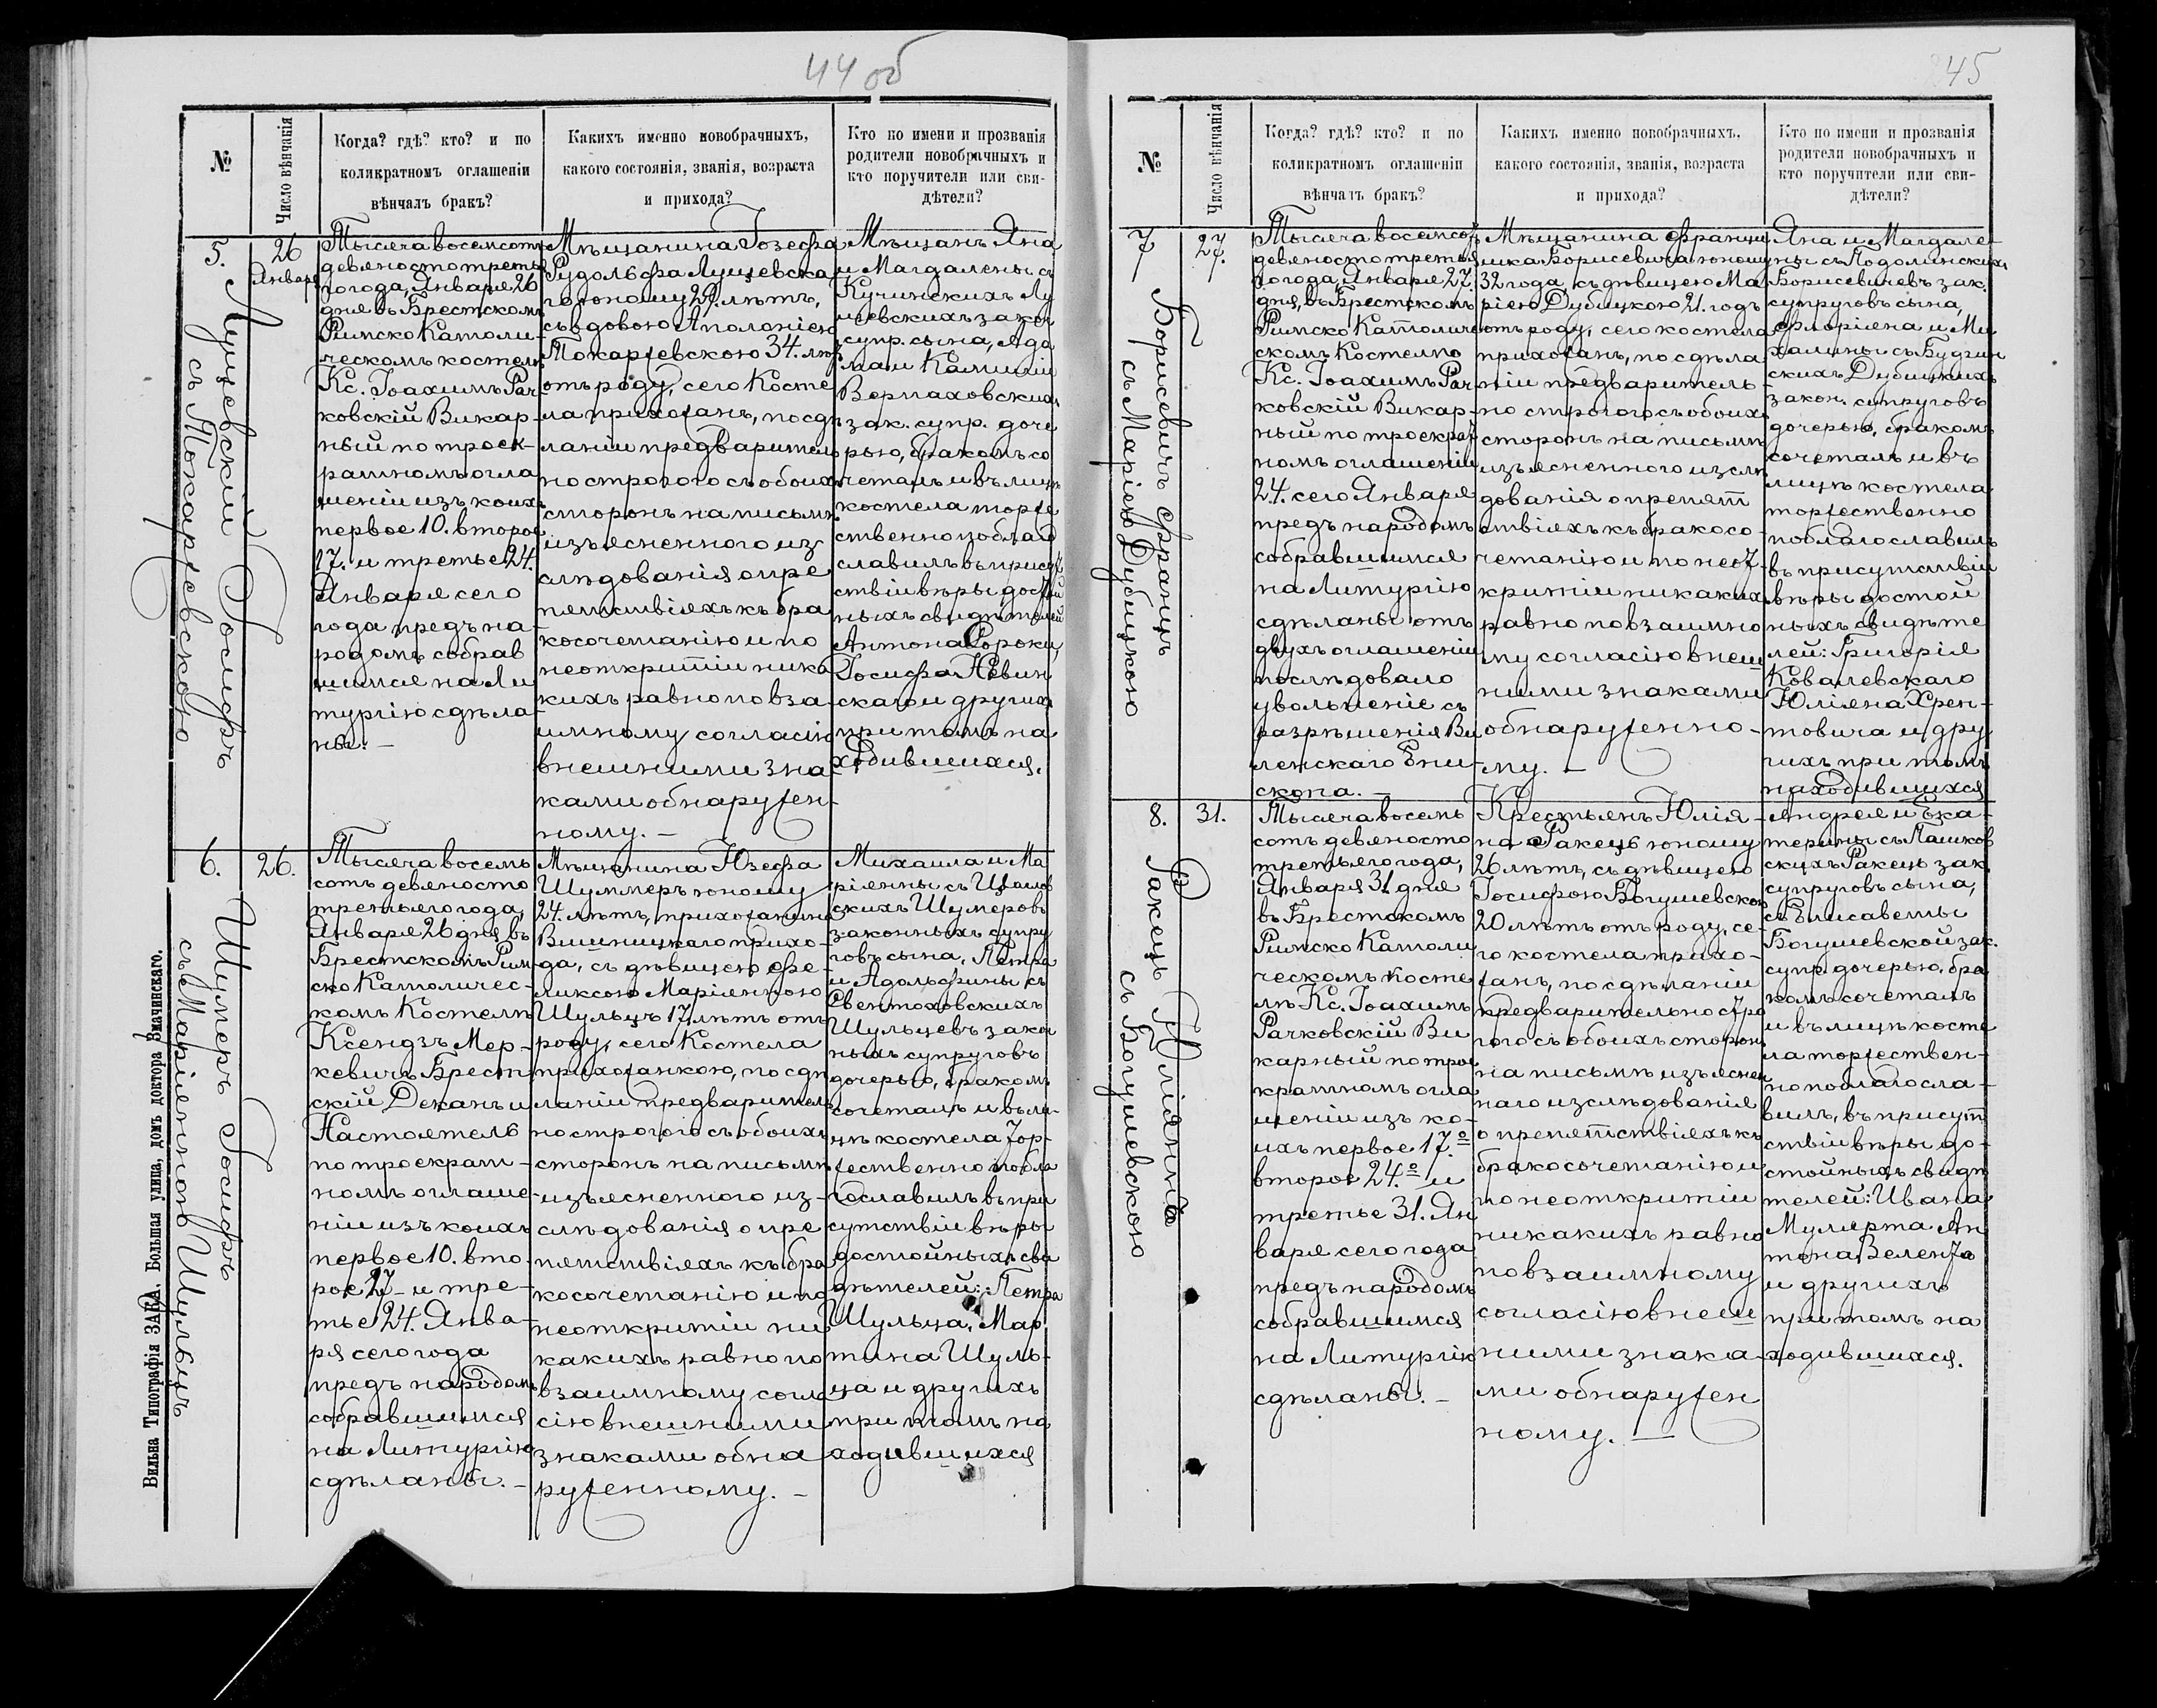 44 об
№
Число вѣнчанія
Когда? гдѣ? кто? и по
коликратномъ оглашеніи
вѣнчалъ бракъ?
Какихъ именно новобрачныхъ,
какого состоянія, званія, возраста
и прихода?
Кто по имени и прозванія
родители новобрачныхъ и
кто поручители или сви-
дѣтели?
5.
Луцевскій Іосифъ
съ Токаржевскою
26
Января
Тысяча восемсотъ
девяносто треть
яго года, Января 26
дня въ Брестскомъ
Римско Католи-
ческомъ костелѣ
Кс. Іоахимъ Рач
ковскій Викар-
ный по троек-
ратномъ огла
шеніи изъ коихъ
первое 10. второе
17. и третье 24.
Января сего
года предъ на-
родомъ собрав
шимся на Ли
тургію сдѣла
ны. —
Мѣщанина Іозефа
Рудольфа Луцевска
го юному 29. лѣтъ,
съ вдовою Аполоніею
Токаржевскою 34. лѣтъ
отъ роду, сего Косте
ла прихожанъ, по сдѣ
ланіи предваритель
но строгого съ обоихъ
сторонъ на письмѣ
изъясненного из
слѣдованія о пре
пятствіяхъ къ бра
косочетанію и по
неоткрытіи ника
кихъ равно по вза-
имному согласію
внешними зна-
ками обнаружен-
ному. —
Мѣщанъ Яна
и Магдалены съ
Кучинскихъ Лу
цевскихъ закон
супр. сына, Ада
ма и Камиліи
Верпаховскихъ
зак. супр. доче
рью, бракомъ со
четалъ и въ лицѣ
костела торже
ственно поблаго
славилъ въ присут
ствіи вѣры достой
ныхъ свидѣтелей
Антона Сороки,
Іосифа Невин
скаго и другихъ
при томъ на
ходившихся.
6.
Шумеръ Іосифъ
съ Маріянною Шульцъ
26.
Тысяча восемь
сотъ девяносто
третьяго года,
Января 26 дня въ
Брестскомъ Рим-
ско Католичес-
комъ Костелѣ
Ксендзъ Мер-
кевичъ Брест
скій Деканъ и
Настоятель
по троекрат-
номъ оглаше-
ніи изъ коихъ
первое 10. вто
рое 17 и тре-
тье 24. Янва-
ря сего года
предъ народомъ
собравшимся
на Литургію
сдѣланы. —
Мѣщанина Юзефа
Шуммеръ юному
24. лѣтъ, прихожанина
Вишницкаго прихо-
да, съ дѣвицею Фе-
ликсою Маріянною
Шульцъ 17 лѣтъ отъ
роду, сего Костела
прихожанкою, по сдѣ
ланіи предваритель
но строгого съ обоихъ
сторонъ на письмѣ
изъясненного из-
слѣдованія о пре
пятствіяхъ къ бра
косочетанію и по
неоткрытіи ни
какихъ равно по
взаимному согла
сію внешними
знаками обна
руженному. —
Михаила и Ма
ріянны съ
скихъ Шумеровъ
законныхъ супру
говъ сына, Петра
и Адольфины съ
Свентоховскихъ
Шульцевъ закон
ныхъ супруговъ
дочерью, бракомъ
сочеталъ и въ ли-
цѣ костела тор-
жественно побла
гославилъ въ при
сутствіи вѣры
достойныхъ сви
дѣтелей: Петра
Шульца, Мар
тина Шуль-
ца и другихъ
при томъ на
ходившихся
Вильна Типографія ЗАКА. Большая улица, домъ доктора Змачинскаго.
45
№
Число вѣнчанія
Когда? гдѣ? кто? и по
коликратномъ оглашеніи
вѣнчалъ бракъ?
Какихъ именно новобрачныхъ,
какого состоянія, званія, возраста
и прихода?
Кто по имени и прозванія
родители новобрачныхъ и
кто поручители или сви-
дѣтели?
7
Борисевичъ Францъ
съ Маріею Дубицкою
27.
Тысяча восемсот
девяносто третья
го года, Января 27.
дня, въ Брестскомъ
Римско Католиче
скомъ Костелѣ
Кс. Іоахимъ Рач-
ковскій Викар-
ный по троекрат
номъ оглашеніи
24. сего Января
предъ народомъ
собравшимся
на Литургію
сдѣланы отъ
двухъ оглашеній
послѣдовало
увольненіе съ
разрѣшенія Ви
ленскаго Епи-
скопа. —
Мѣщанина Франци
шка Борисевича юному
32 года, съ дѣвицею Ма
ріею Дубицкою 21. годъ
отъ роду, сего костела
прихожанъ, по сдѣла
ніи предваритель-
но строгого съ обоихъ
сторонъ на письмѣ
изъясненного изслѣ
дованія о препят
ствіяхъ къ бракосо-
четанію и по неот-
крытіи никакихъ
равно по взаимно
му согласію внеш
ними знаками
обнаруженно-
му. —
Яна и Магдале-
ны съ Подолинскихъ
Борисевичевъ зак.
супруговъ сына,
Флоріяна и Ми
халины съ Будзин
скихъ Дубицкихъ
закон. супруговъ
дочерью, бракомъ
сочеталъ и въ
лицѣ костела
торжественно
поблагославилъ
въ присутствіи
вѣры достой
ныхъ свидѣте
лей: Григорія
Ковалевскаго
Юліяна Хрен-
товича и дру
гихъ при томъ
находившихся
8.
Ракецъ Юліянъ
съ Богушевскою
31.
Тысяча восемь
сотъ девяносто
третьяго года,
Января 31 дня
въ Брестскомъ
Римско Католи
ческомъ Косте
лѣ Кс. Іоахимъ
Рачковскій Ви
карный по трое
кратномъ огла
шеніи изъ ко-
ихъ первое 17.º
второе 24.º и
третье 31. Ян
варя сего года
предъ народомъ
собравшимся
на Литургію
сдѣланы. —
Крестьянъ Юлія-
на Ракець юному
26 лѣтъ, съ дѣвицею
Іосифою Богушевскою
20 лѣтъ отъ роду, се-
го костела прихо-
жанъ, по сдѣланіи
предварительно стро
гого съ обоихъ сторонъ
на письмѣ изъяснен
наго изслѣдованія
о препятствіяхъ къ
бракосочетанію и
по неоткрытіи
никакихъ равно
по взаимному
согласію внеш
ними знака-
ми обнаружен
ному. —
Андрея и Ека-
терины съ Пашков
скихъ Ракець зак.
супруговъ сына,
съ Елисаветы
Богушевской зак.
супр. дочерью, бра
комъ сочеталъ
и въ лицѣ косте
ла торжествен-
но поблагосла-
вилъ, въ присут
ствіи вѣры до-
стойныхъ свидѣ
телей: Ивана
Мулярта Ан
тона Зелента
и другихъ
при томъ на
ходившихся.